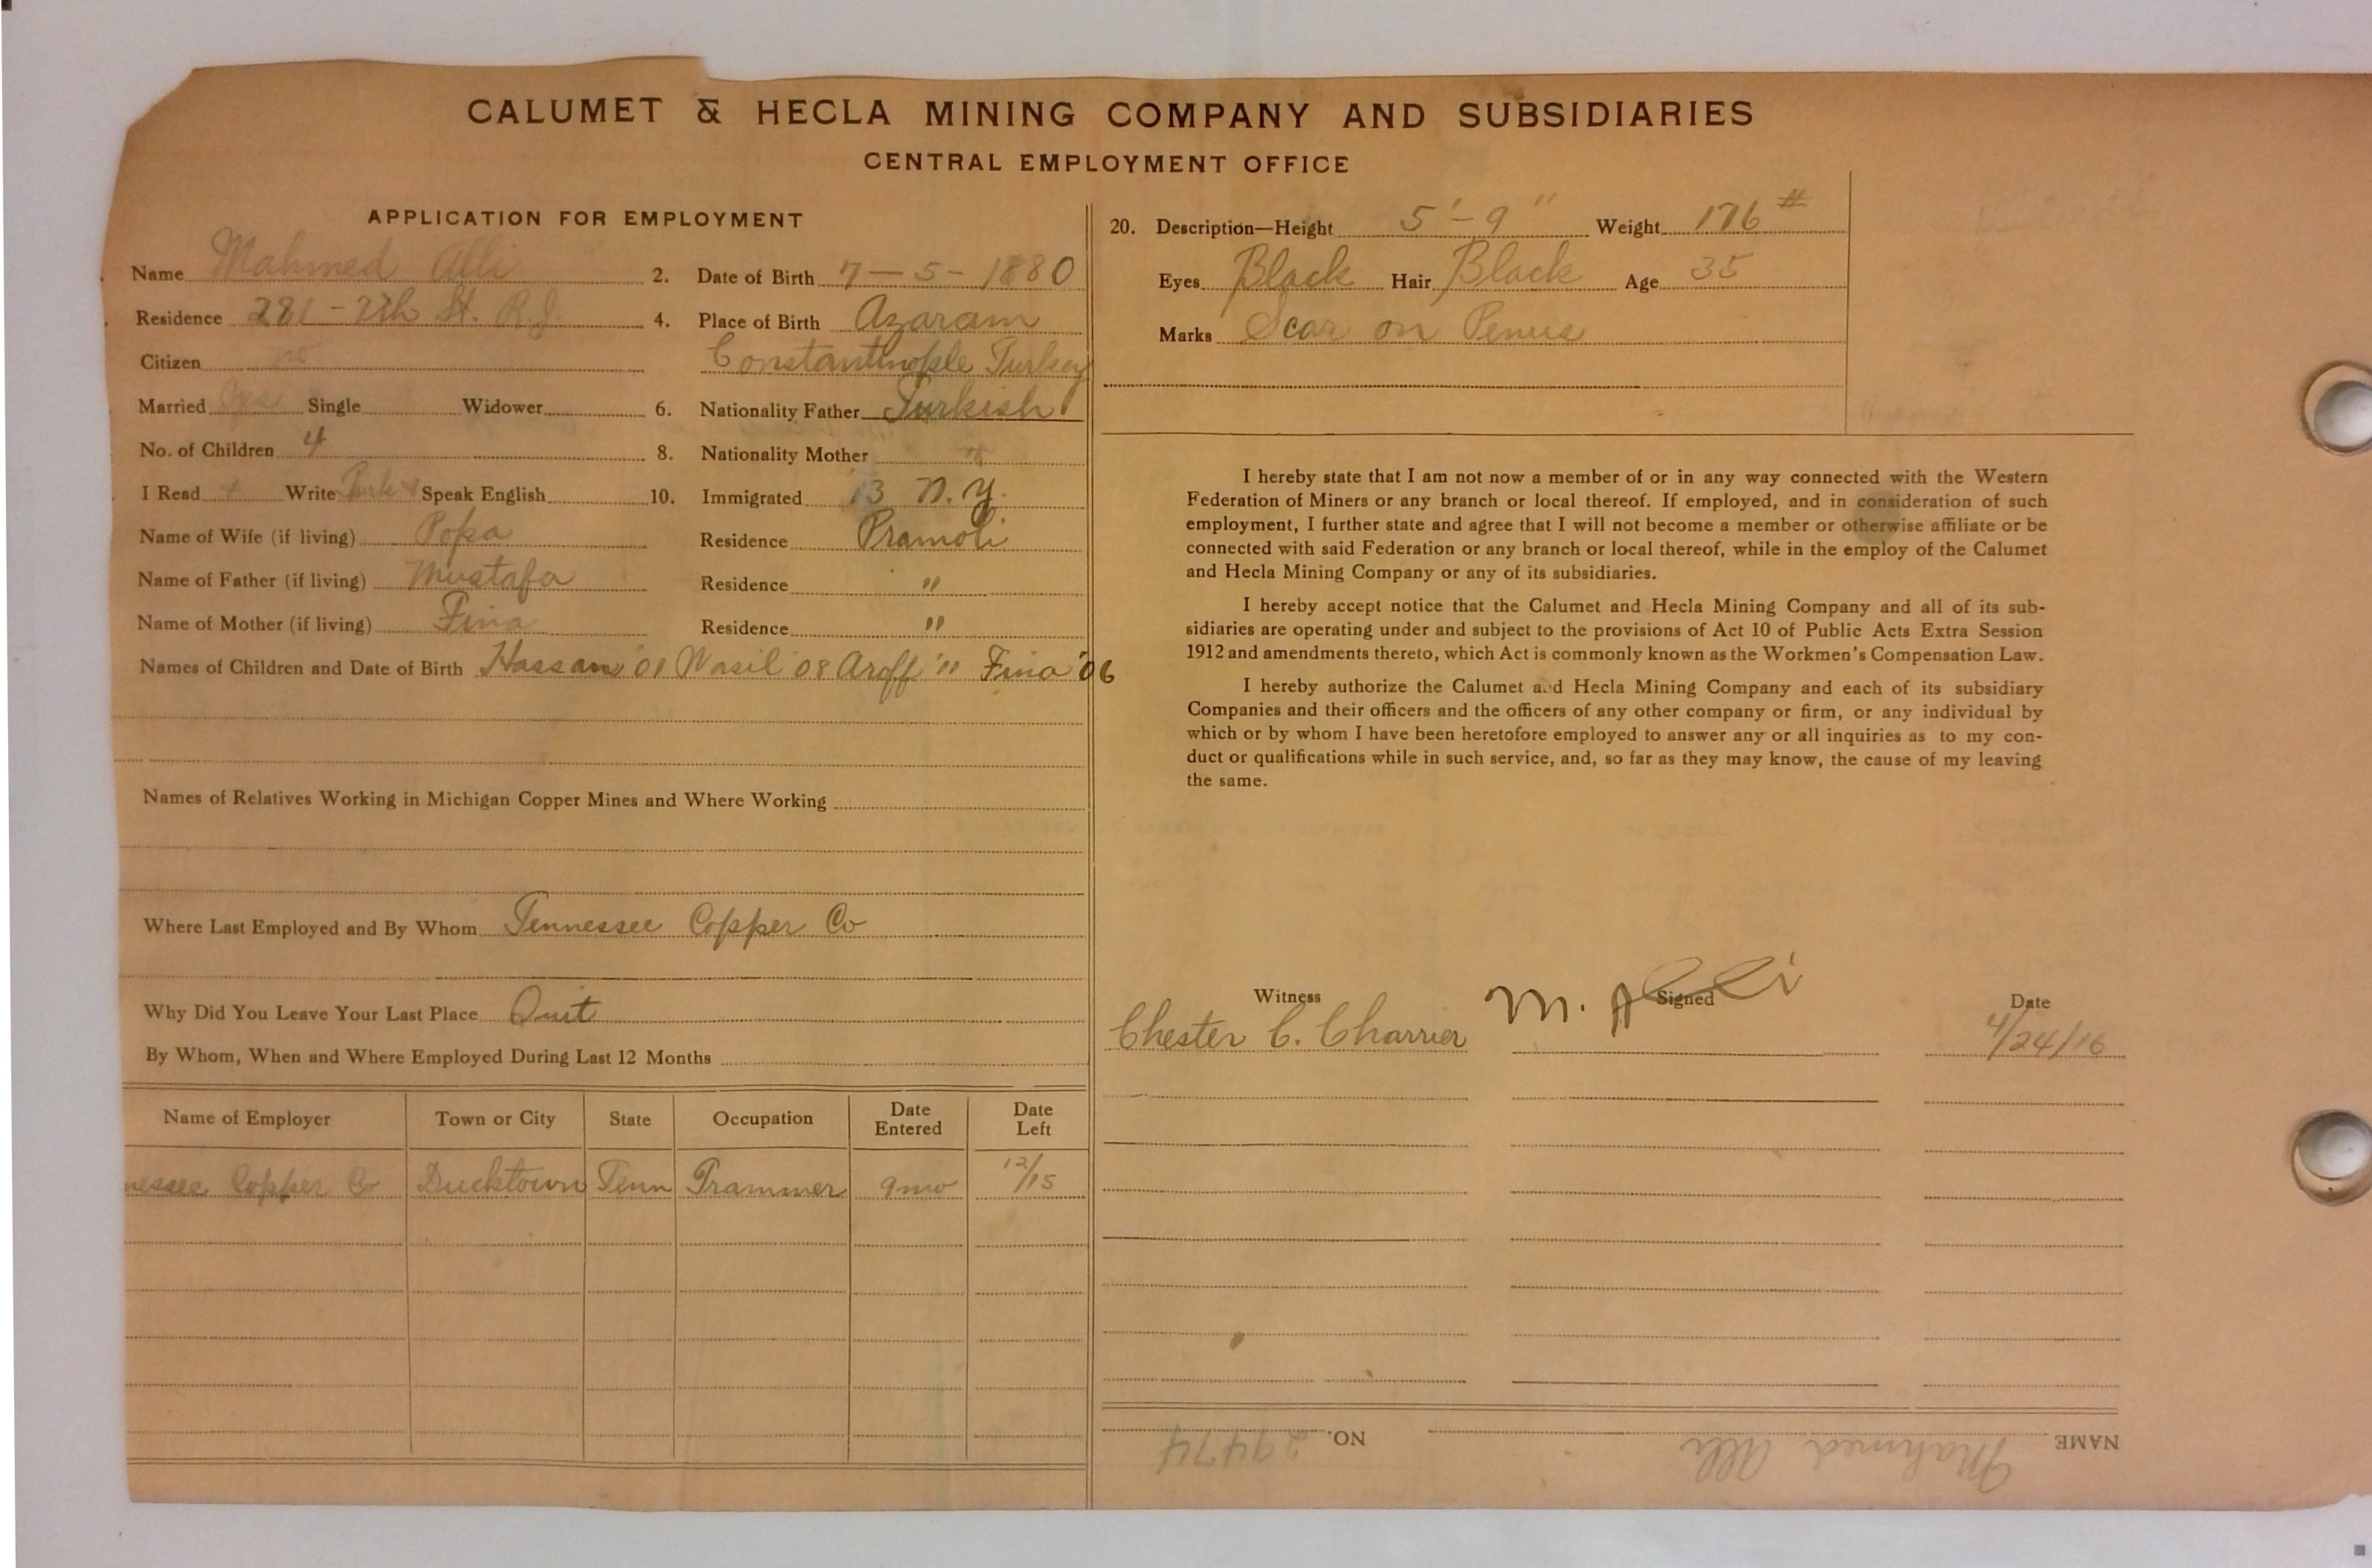 CALUMET & HECLA MINING COMPANY AND SUBSIDIARIES
CENTRAL EMPLOYMENT OFFICE
APPLICATION FOR EMPLOYMENT
Name Mahmed Alli 2. Date of Birth 7-5-1880
Residence 281-7th St. R.J. 4. Place of Birth Azaram
Citizen no Constantinople Turkey
Married yes Single Widower 6. Nationality Father Turkish
No. of Children 4 8. Nationality Mother "
I Read + Write Turk + Speak English 10. Immigrated '13 N.Y.
Name of Wife (if living) Popa Residence Pramoli
Name of Father (if living) Mustafa Residence "
Name of Mother (if living) Fina Residence "
Names of Children and Date of Birth Hassan '01 Wasil '08 Aroff '11 Fina '06
Names of Relatives Working in Michigan Copper Mines and Where Working
Where Last Employed and By Whom Tennessee Copper Co
Why Did You Leave Your Last Place Quit
By Whom, When and Where Employed During Last 12 Months
Name of Employer Town or City State Occupation Date Entered Date Left
nessee Copper Co Ducktown Tenn Trammer 9mo 12/15
20. Description—Height 5'-9" Weight 176#
Eyes Black Hair Black Age 35
Marks Scar on Penus
I hereby state that I am not now a member of or in any way connected with the Western
Federation of Miners or any branch or local thereof. If employed, and in consideration of such
employment, I further state and agree that I will not become a member or otherwise affiliate or be
connected with said Federation or any branch or local thereof, while in the employ of the Calumet
and Hecla Mining Company or any of its subsidiaries.
I hereby accept notice that the Calumet and Hecla Mining Company and all of its sub-
sidiaries are operating under and subject to the provisions of Act 10 of Public Acts Extra Session
1912 and amendments thereto, which Act is commonly known as the Workmen's Compensation Law.
I hereby authorize the Calumet and Hecla Mining Company and each of its subsidiary
Companies and their officers and the officers of any other company or firm, or any individual by
which or by whom I have been heretofore employed to answer any or all inquiries as to my con-
duct or qualifications while in such service, and, so far as they may know, the cause of my leaving
the same.
Witness Signed Date
Chester C. Charrier M. Alli 4/24/16
NAME Mahmed Alli NO. 29474